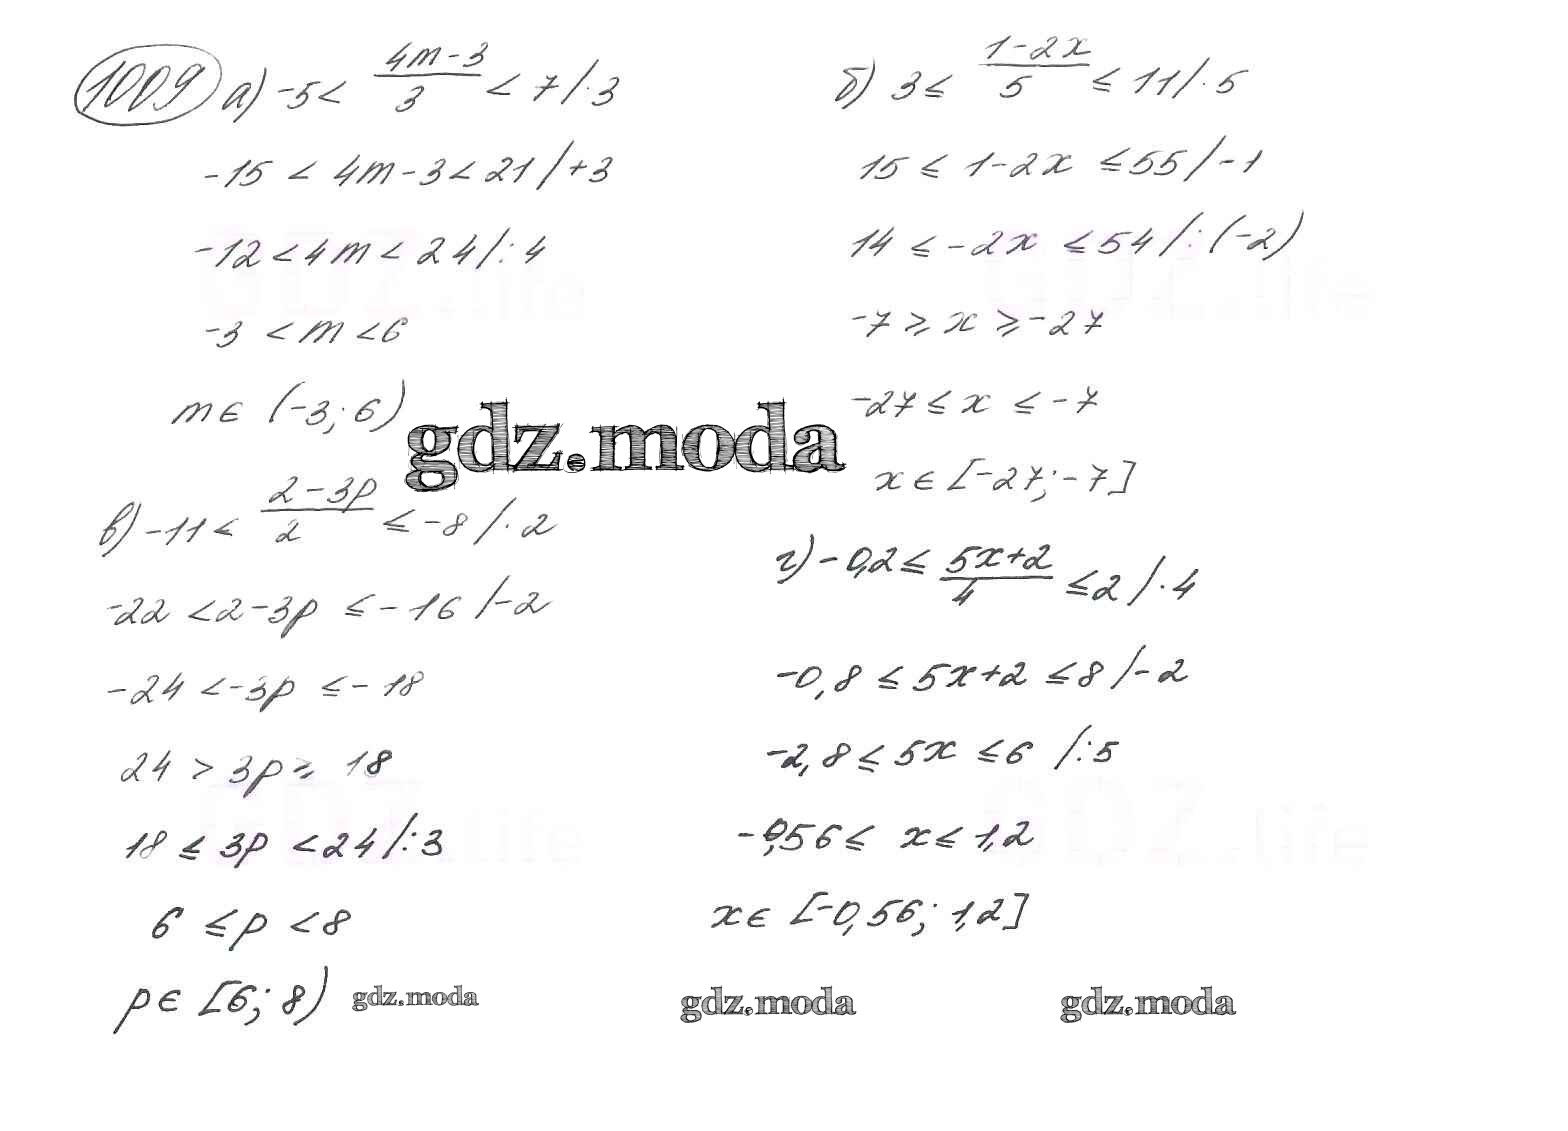 1009 а) -5 < (4m-3)/3 < 7 /·3
-15 < 4m-3 < 21 /+3
-12 < 4m < 24 /:4
-3 < m < 6
m ∈ (-3; 6)
б) 3 ≤ (1-2x)/5 ≤ 11 /·5
15 ≤ 1-2x ≤ 55 /-1
14 ≤ -2x ≤ 54 /:(-2)
-7 ≥ x ≥ -27
-27 ≤ x ≤ -7
x ∈ [-27; -7]
gdz.moda
в) -11 ≤ (2-3p)/2 ≤ -8 /·2
-22 < 2-3p ≤ -16 /-2
-24 < -3p ≤ -18
24 > 3p ≥ 18
18 ≤ 3p < 24 /:3
6 ≤ p < 8
p ∈ [6; 8)
г) -0,2 ≤ (5x+2)/4 ≤ 2 /·4
-0,8 ≤ 5x+2 ≤ 8 /-2
-2,8 ≤ 5x ≤ 6 /:5
-0,56 ≤ x ≤ 1,2
x ∈ [-0,56; 1,2]
gdz.moda
gdz.moda
gdz.moda
GDZ.life
GDZ.life
GDZ.life
GDZ.life